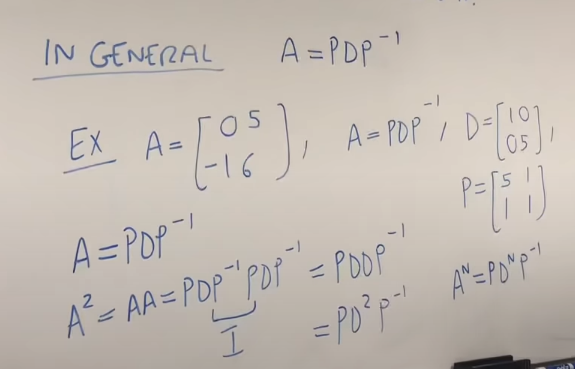 IN GENERAL A = PDP⁻¹
EX A = [0 5; -1 6], A = PDP⁻¹, D = [1 0; 0 5],
P = [5 1; 1 1]
A = PDP⁻¹
A² = AA = PDP⁻¹PDP⁻¹ = PDDP⁻¹
I
= PD²P⁻¹
Aᴺ = PDᴺP⁻¹